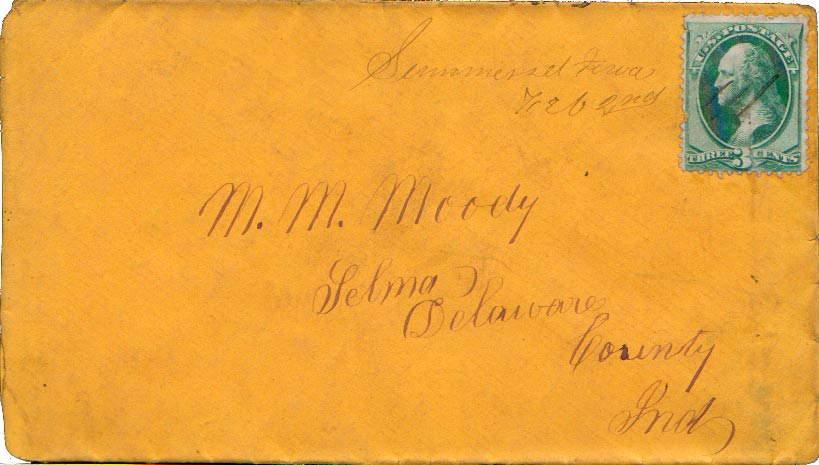 Summerset Iowa
Feb 2nd
U.S. POSTAGE
THREE 3 CENTS
M. M. Moody
Selma
Delaware
County
Ind